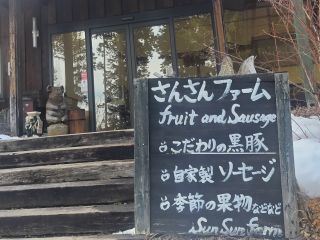 さんさんファーム
fruit and Sausage
こだわりの黒豚
自家製 ソーセージ
季節の果物などなど
Sun Sun Farm